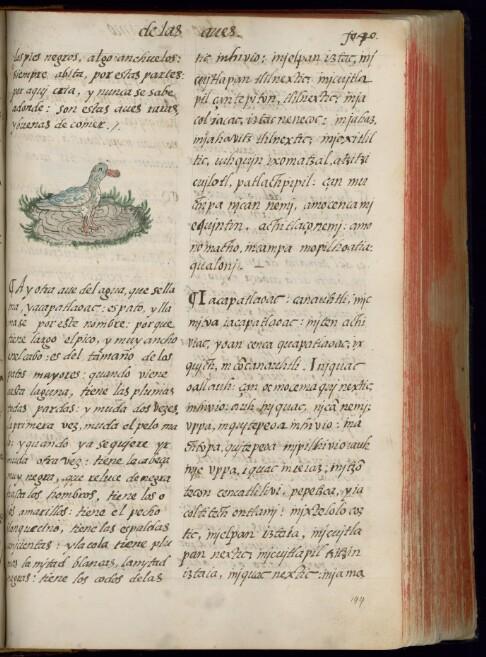 de las aues.
fo. 40.
los pies negros, algo anchuelos:
siempre abita, por estas partes:
por aqui cria, y nunca se sabe
adonde: son estas aues raras,
y buenas de comer./.
¶ Ay otra aue del agua, que se lla
ma, yacapatlaoac: es pato, y lla
mase por este nombre: porque
tiene largo el pico, y muy ancho
en el cabo: es del tamaño de los
patos mayores: quando viene
a esta laguna, tiene las plumas
todas pardas: y muda dos vezes,
la primera vez, muda el pelo ma
y quando ya se quiere yr
muda otra vez: tiene la cabeça
muy negra, que reluce de negra
hasta los hombros, tiene los o
jos amarillos: tiene el pecho
blanquecino, tiene las espaldas
: y la cola tiene plu
mas la mytad blancas, la mytad
negras: tiene los codos de las
tic inhivio: injelpan iztac, inj
cujtlapan tlilnextic: injcujtla
pil çan tepiton, tlilnextic: inja
col iacac, iztac nenecoc:
injahavitz tlilnextic: injcxi tlil
tic, iuhquin ixomatzal, atzitzi
cuilotl, patlachpipil: çan mu
chipa njcan nemj, amo cenca mj
equintin, achi tlaçonemj: amo
no macho, in campa mopilhoatia:
qualonj. —
¶ Iacapatlaoac: canauhtli: injc
mjtva iacapatlaoac: injten achi
viac, yoan cenca quapatlaoac, ix
quich, in concanauhtli. Injquac
oallauh: çan ixmocemaquj nextic,
inhivio: auh injquac, njcan nemj:
vppa, in quitepeoa inhivio: ma
quitepeoa in pilhivio: auh
vppa, iquac in ie iaz: in
tecon cencatliltic, pepetlaca, y ia
coltitech entlamj: injxtelolo coz
tic, injelpan iztaca, injcujtla
pan nextic: injcujtlapil
iztaca, injquac nextic: injama
199